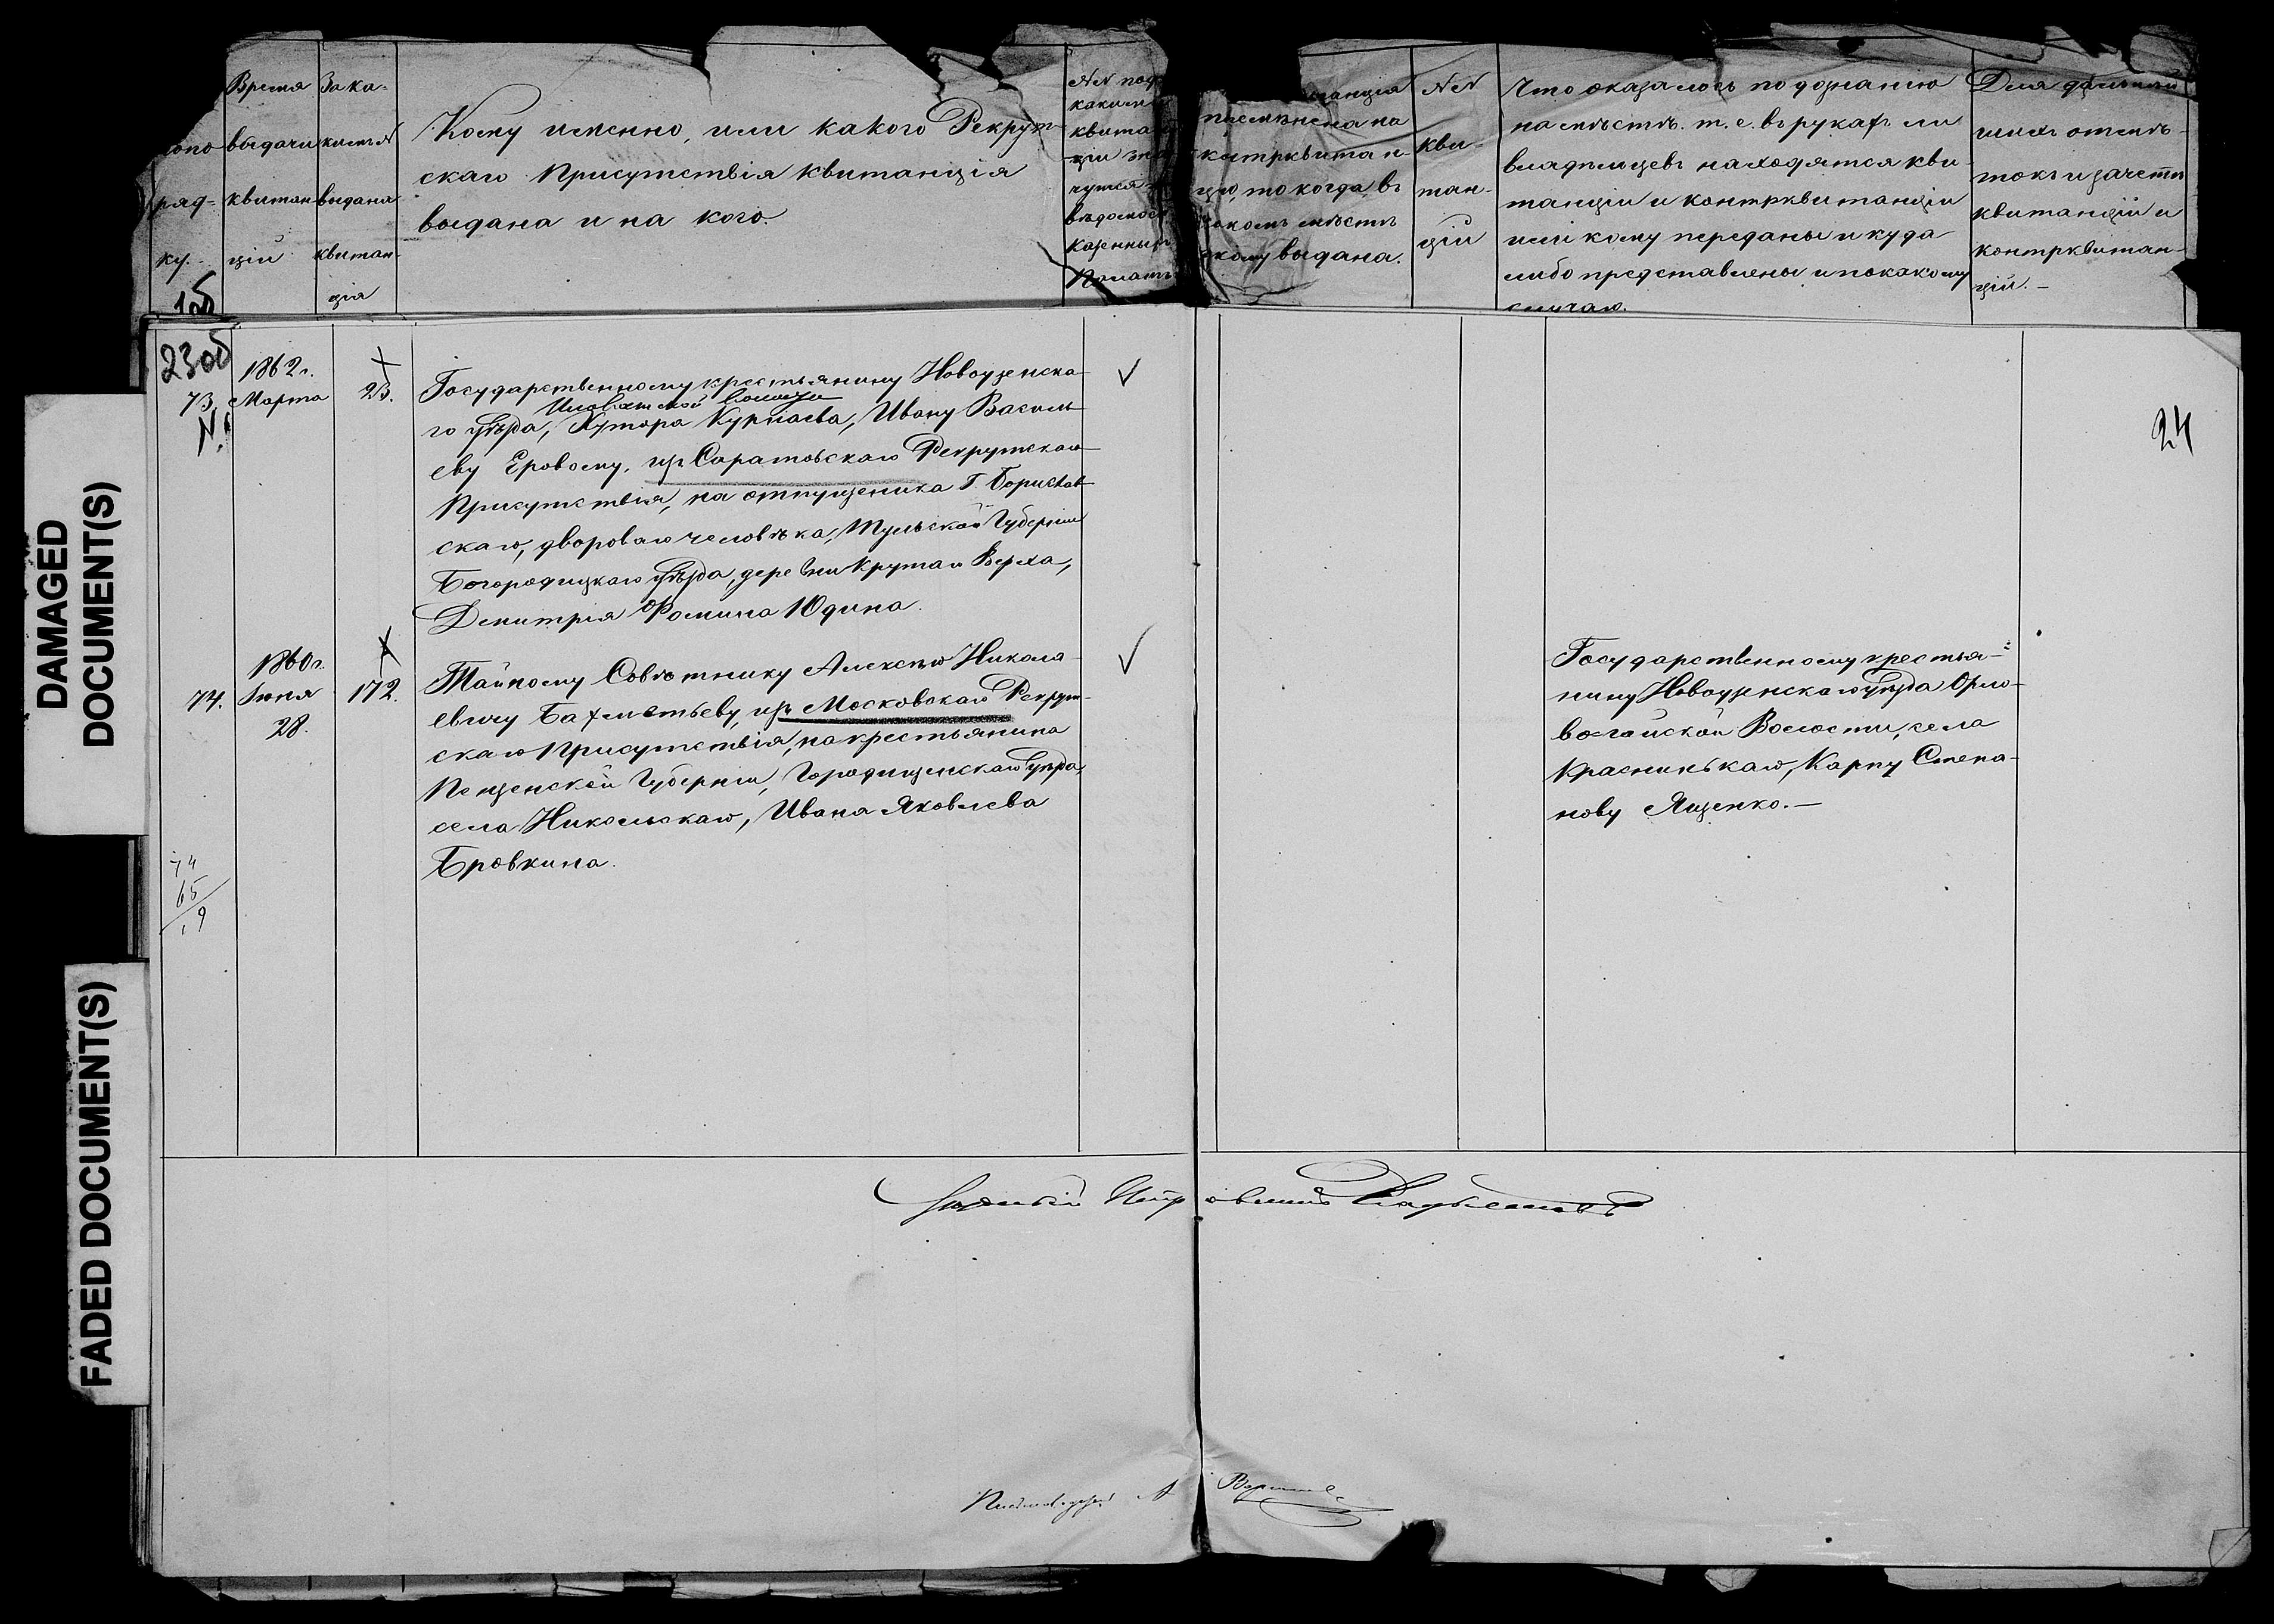 DAMAGED
DOCUMENT(S)
FADED DOCUMENT(S)
ряд-
ку.
1об
Время
выдачи
квитан
цій
За ка-
кимъ №
выдана
квитан-
ція
Кому именно, или какого Рекрут-
скаго Присутствія квитанція
выдана и на кого.
№№ под
каким
квита
ціи зна
чутся
вѣдомос
Казенных
Палатъ
танція
на
контрквитан-
цію, то когда въ
какомъ мѣстѣ
и кому выдана.
№№
кви-
тан-
цій
Что оказалось по дознанію
на мѣстѣ. т. е. въ рукахъ ли
владѣльцевъ находятся кви-
танціи и контрквитанціи
или кому переданы и куда
либо представлены и по какому
случаю.
Для дальнѣй
шихъ отмѣ-
токъ и зачетъ
квитанцій и
контрквитан-
цій. -
23об
73.
1862 г.
Марта
23.
Государственному крестьянину Новоузенска-
волости
го уѣзда, Хутора Курпаева, Ивану Василь-
еву Еровому, изъ Саратовскаго Рекрутскаго
Присутствія, на отпущеника Г. Борисов-
скаго, двороваго человѣка, Тульской Губерніи
Богородицкаго уѣзда, деревни Крутаго Верха,
Дмитрія Фомина Юдина.
24
74.
1860 г.
Іюня
28.
172.
Тайному Совѣтнику Алексѣю Никола-
евичу Бахметьеву, изъ Московскаго Рекрут-
скаго Присутствія, на крестьянина
Пензенской Губерніи, Городищенскаго уѣзда,
села Никольскаго, Ивана Яковлева
Бровкина.
Государственному крестья-
нину Новоузенскаго уѣзда Орло-
вогайской Волости, села
Красненькаго, Карпу Степа-
нову Ященко. -
74
65
9
Письмоводитель